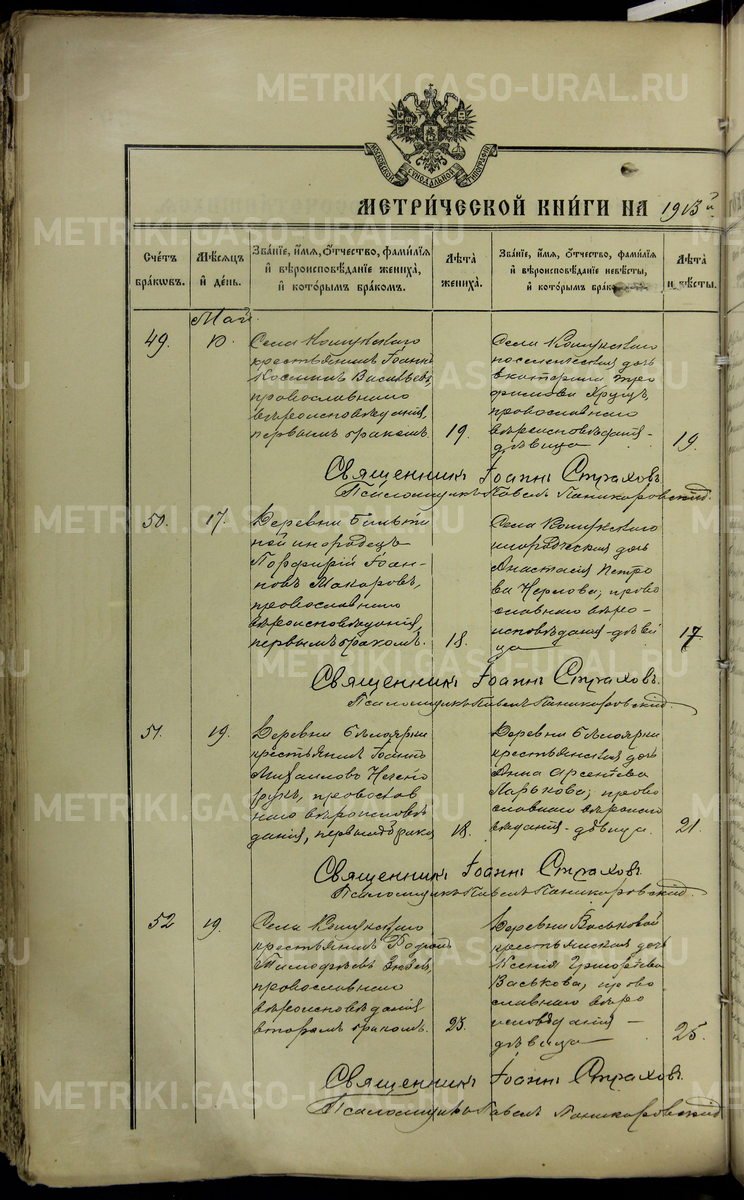 МОСКОВСКОЙ СѴНОДАЛЬНОЙ ТИПОГРАФІИ
МЕТРИ́ЧЕСКОЙ КНИ́ГИ НА 1913й
Сче́тъ бра́кѡвъ.
Мѣ́сяцъ и҆ де́нь.
Зва́нїе, и҆́мя, ѻ҆́тчество, фами́лїя
и҆ вѣроисповѣ́данїе жениха̀,
и҆ кото́рымъ бра́комъ.
Лѣ́та жениха̀.
Зва́нїе, и҆́мя, ѻ҆́тчество, фами́лїя
и҆ вѣроисповѣ́данїе невѣ́сты,
и҆ кото́рымъ
Лѣ́та
Май.
49.
10.
Села Кошукскаго
крестьянинъ Іоаннъ
Косминъ Васильевъ,
православнаго
вѣроисповѣданія,
первымъ бракомъ.
19.
Села Кошукскаго
дочь
Екатерина Тро
фимова
православнаго
вѣроисповѣданія -
дѣвица
19.
Священникъ Іоаннъ Страховъ.
Псаломщикъ Павелъ Паникаровскій.
50.
17.
Деревни
инородецъ
Порфирій Іоан-
новъ Макаровъ,
православнаго
вѣроисповѣданія,
первымъ бракомъ.
18.
Села Кошукскаго
инородческая дочь
Анастасія Петро
ва право
славнаго вѣро-
исповѣданія - дѣви
ца
17
Священникъ Іоаннъ Страховъ.
Псаломщикъ Павелъ Паникаровскій.
51.
19.
Деревни Бѣлоярки
крестьянинъ Іоаннъ
Михаиловъ
православ
наго вѣроисповѣ
данія, первымъ брако
18.
Деревни Бѣлоярки
крестьянская дочь
Анна Арсентьева
Ларькова; право
славнаго вѣроисп
вѣданія - дѣвица.
21.
Священникъ Іоаннъ Страховъ.
Псаломщикъ Павелъ Паникаровскій.
52
19.
Села Кошукскаго
крестьянинъ
Тимофѣевъ
православнаго
вѣроисповѣданія
вторымъ бракомъ.
23.
Деревни Васьковой
крестьянская дочь
Ксенія Григорьева
Васькова, право
славнаго вѣро
исповѣданія -
дѣвица
25.
Священникъ Іоаннъ Страховъ.
Псаломщикъ Павелъ Паникаровскій
METRIKI.GASO-URAL.RU